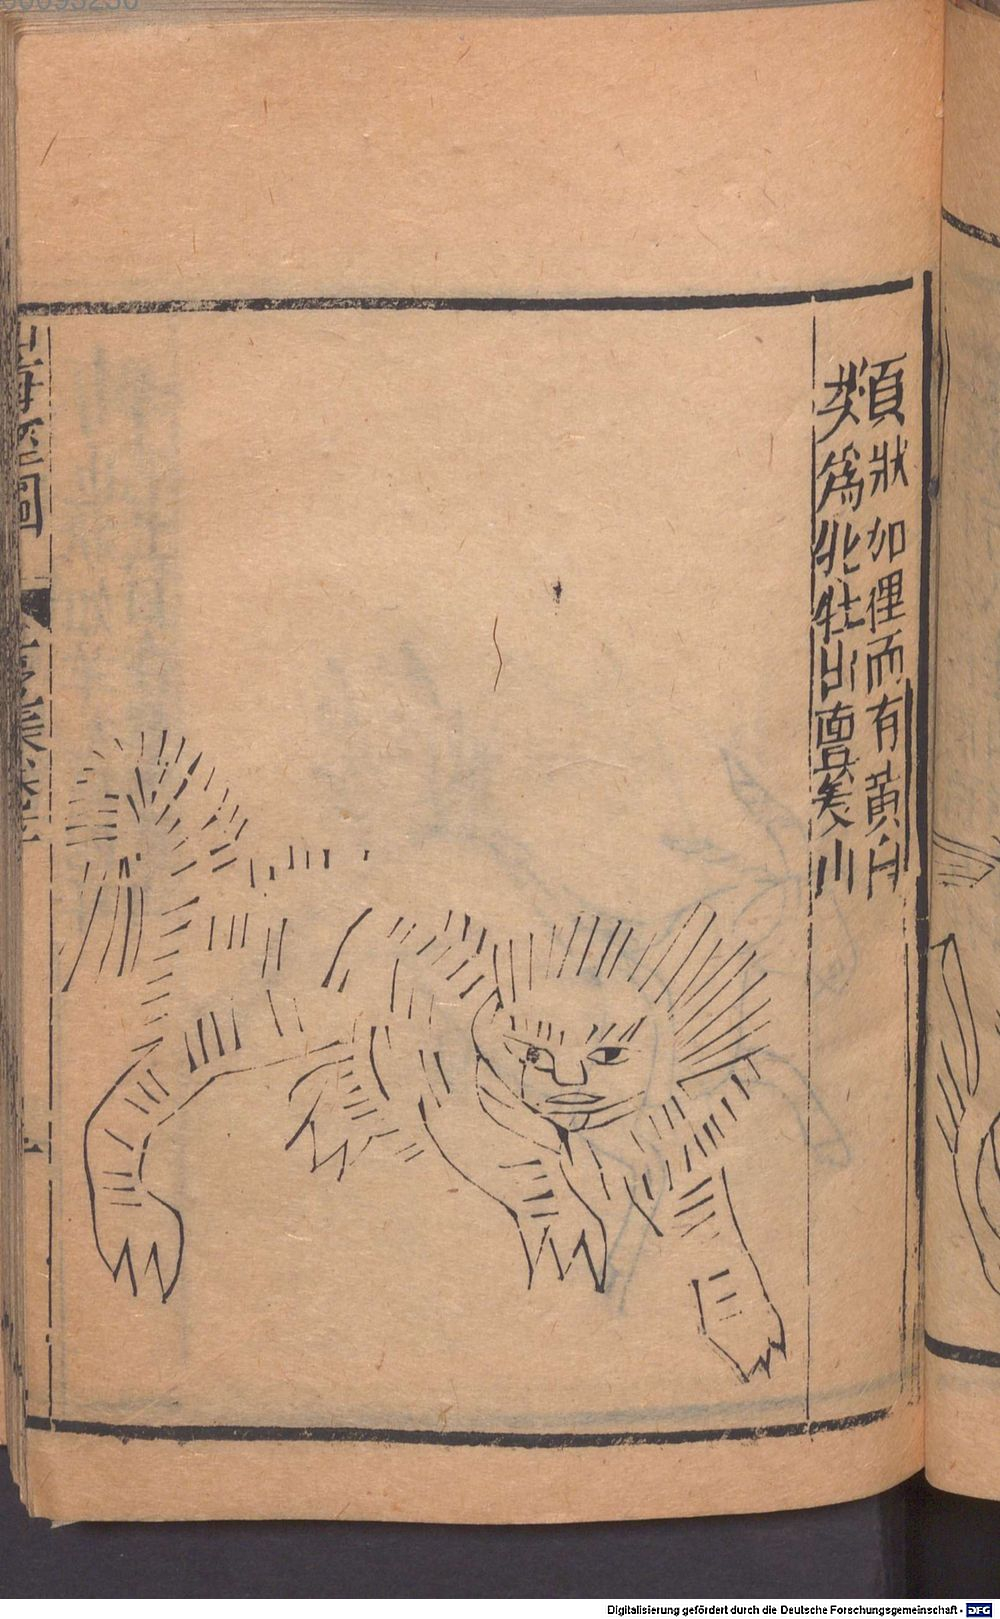 類
狀如狸而有黃白
為牝牡出亶爰山
山海經圖
Digitalisierung gefördert durch die Deutsche Forschungsgemeinschaft - DFG